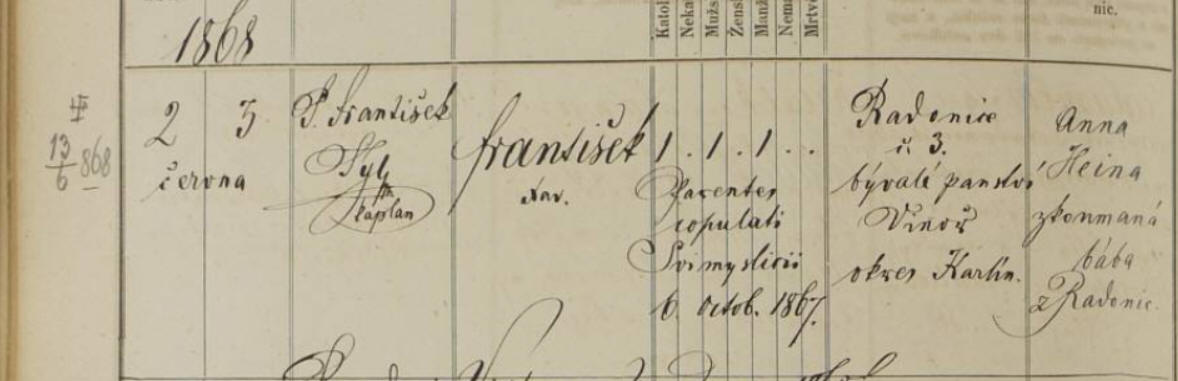 nic.
Katol
Neka
Mužs
Žensk
Manž
Nema
Mrtvě
1868
13/6 868
2 3
června
P. František
Tyl
kaplan
František
1 . 1 . 1 . .
Parentes
copulati
Svimyslicii
6. Octob. 1867.
Radonice
č. 3.
bývalé panství
Vinoř
okres Karlín.
Anna
Heina
zkoumaná
bába
z Radonic.